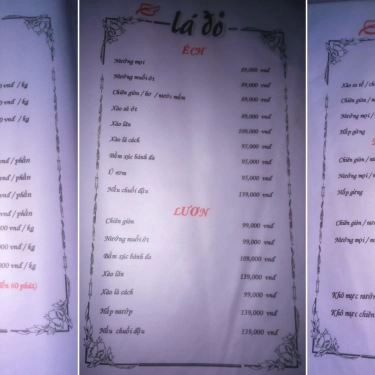 lá đỏ
ẾCH
Nướng mọi 89,000 vnđ
Nướng muối ớt 89,000 vnđ
Chiên giòn / bơ / nước mắm 89,000 vnđ
Xào sả ớt 89,000 vnđ
Xào lăn 109,000 vnđ
Xào lá cách 95,000 vnđ
Bằm xúc bánh đa 95,000 vnđ
Ủ rơm 95,000 vnđ
Nấu chuối đậu 139,000 vnđ
LƯƠN
Chiên giòn 99,000 vnđ
Nướng muối ớt 99,000 vnđ
Bằm xúc bánh đa 109,000 vnđ
Xào lăn 139,000 vnđ
Xào lá cách 99,000 vnđ
Hấp mướp 139,000 vnđ
Nấu chuối đậu 139,000 vnđ
vnđ / kg
vnđ / kg
vnđ / kg
vnđ / phần
vnđ / phần
vnđ / phần
vnđ / phần
000 vnđ / kg
000 vnđ / kg
000 vnđ / kg
60 phút)
Xào sa tế /
Chiên giòn /
Nướng mọi /
Hấp gừng
Chiên giòn /
Nướng mọi /
Hấp gừng
Chiên giòn /
Nướng mọi /
Khô mực nướng
Khô mực chiên